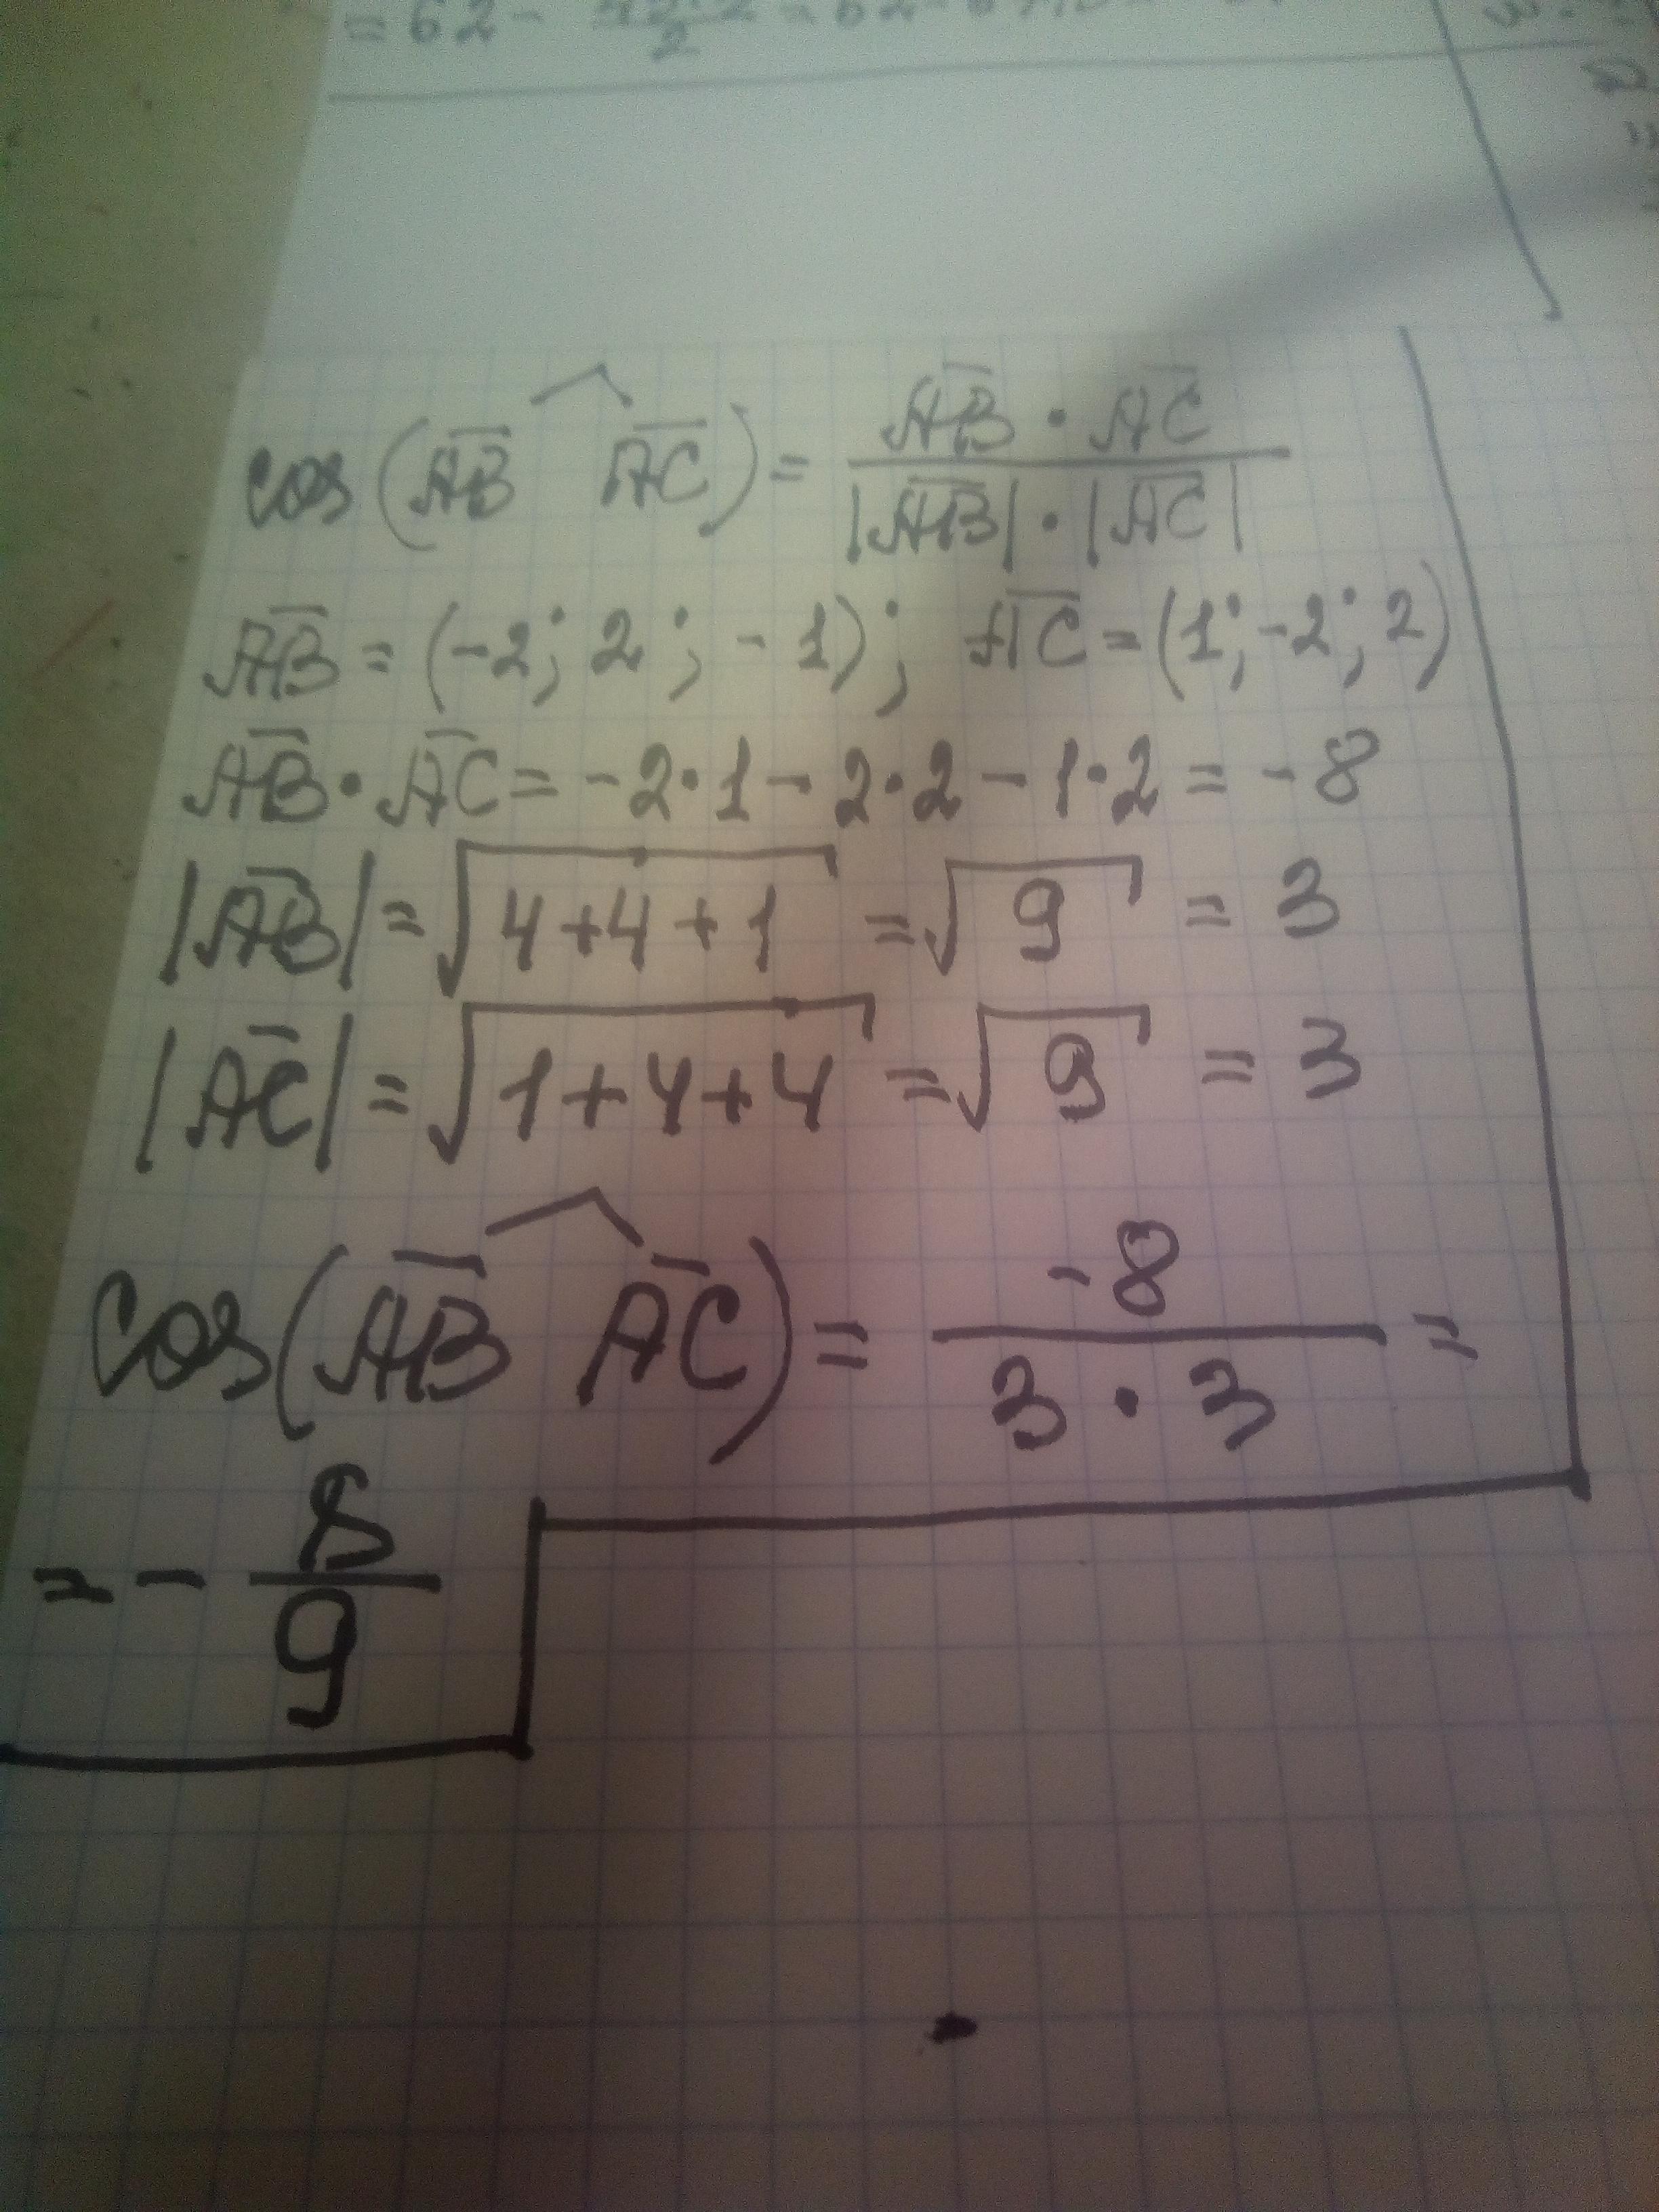 = 62 -
cos(A̅B̅ ^ A̅C̅) = (A̅B̅ · A̅C̅) / (|A̅B̅| · |A̅C̅|)
A̅B̅ = (-2; 2; -1); A̅C̅ = (1; -2; 2)
A̅B̅ · A̅C̅ = -2·1 - 2·2 - 1·2 = -8
|A̅B̅| = √(4+4+1) = √9 = 3
|A̅C̅| = √(1+4+4) = √9 = 3
cos(A̅B̅ ^ A̅C̅) = -8 / (3 · 3) =
= - 8/9